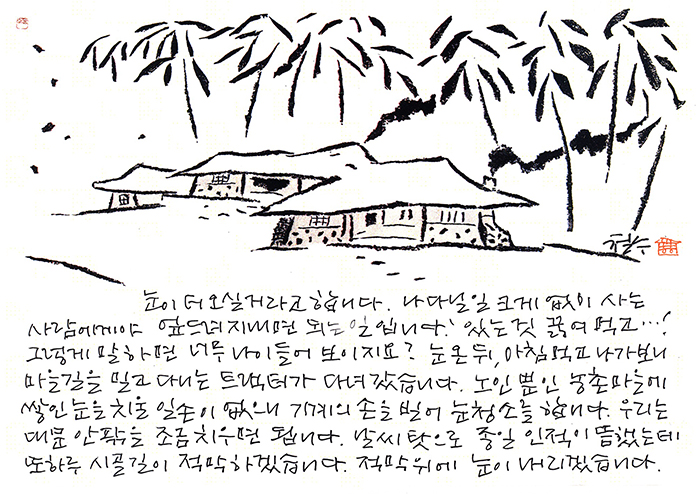 철수
눈이 더 오실거라고 합니다. 나다닐 일 크게 없이 사는
사람에게야 엎드려지내면 되는 일입니다. 있는 것 끓여 먹고…!
그렇게 말하면 너무 나이들어 보이지요? 눈 온 뒤, 아침먹고 나가보니
마을길을 밀고 다니는 트랙터가 다녀갔습니다. 노인 뿐인 농촌마을에
쌓인 눈을 치울 일손이 없으니 기계의 손을 빌어 눈청소를 합니다. 우리는
대문 안팎을 조금 치우면 됩니다. 날씨 탓으로 종일 인적이 뜸했는데
또하루 시골길이 적막하겠습니다. 적막위에 눈이 내리겠습니다.